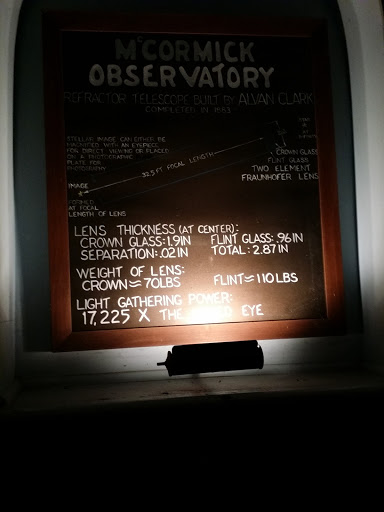 McCORMICK
OBSERVATORY
REFRACTOR TELESCOPE BUILT BY ALVAN CLARK
COMPLETED IN 1883
STELLAR IMAGE CAN EITHER BE
MAGNIFIED WITH AN EYEPIECE
FOR DIRECT VIEWING OR PLACED
ON A PHOTOGRAPHIC
PLATE FOR
PHOTOGRAPHY
32.5 FT FOCAL LENGTH
CROWN GLASS
FLINT GLASS
TWO ELEMENT
FRAUNHOFER LENS
IMAGE
FORMED
AT FOCAL
LENGTH OF LENS
LENS THICKNESS (AT CENTER):
CROWN GLASS: 1.91IN FLINT GLASS: .96IN
SEPARATION: .02IN TOTAL: 2.87IN
WEIGHT OF LENS:
CROWN≈70LBS FLINT≈110LBS
LIGHT GATHERING POWER:
17,225 X THE EYE